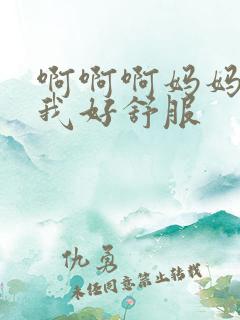 啊啊啊妈妈
我好舒服
仇勇
未经同意禁止转载